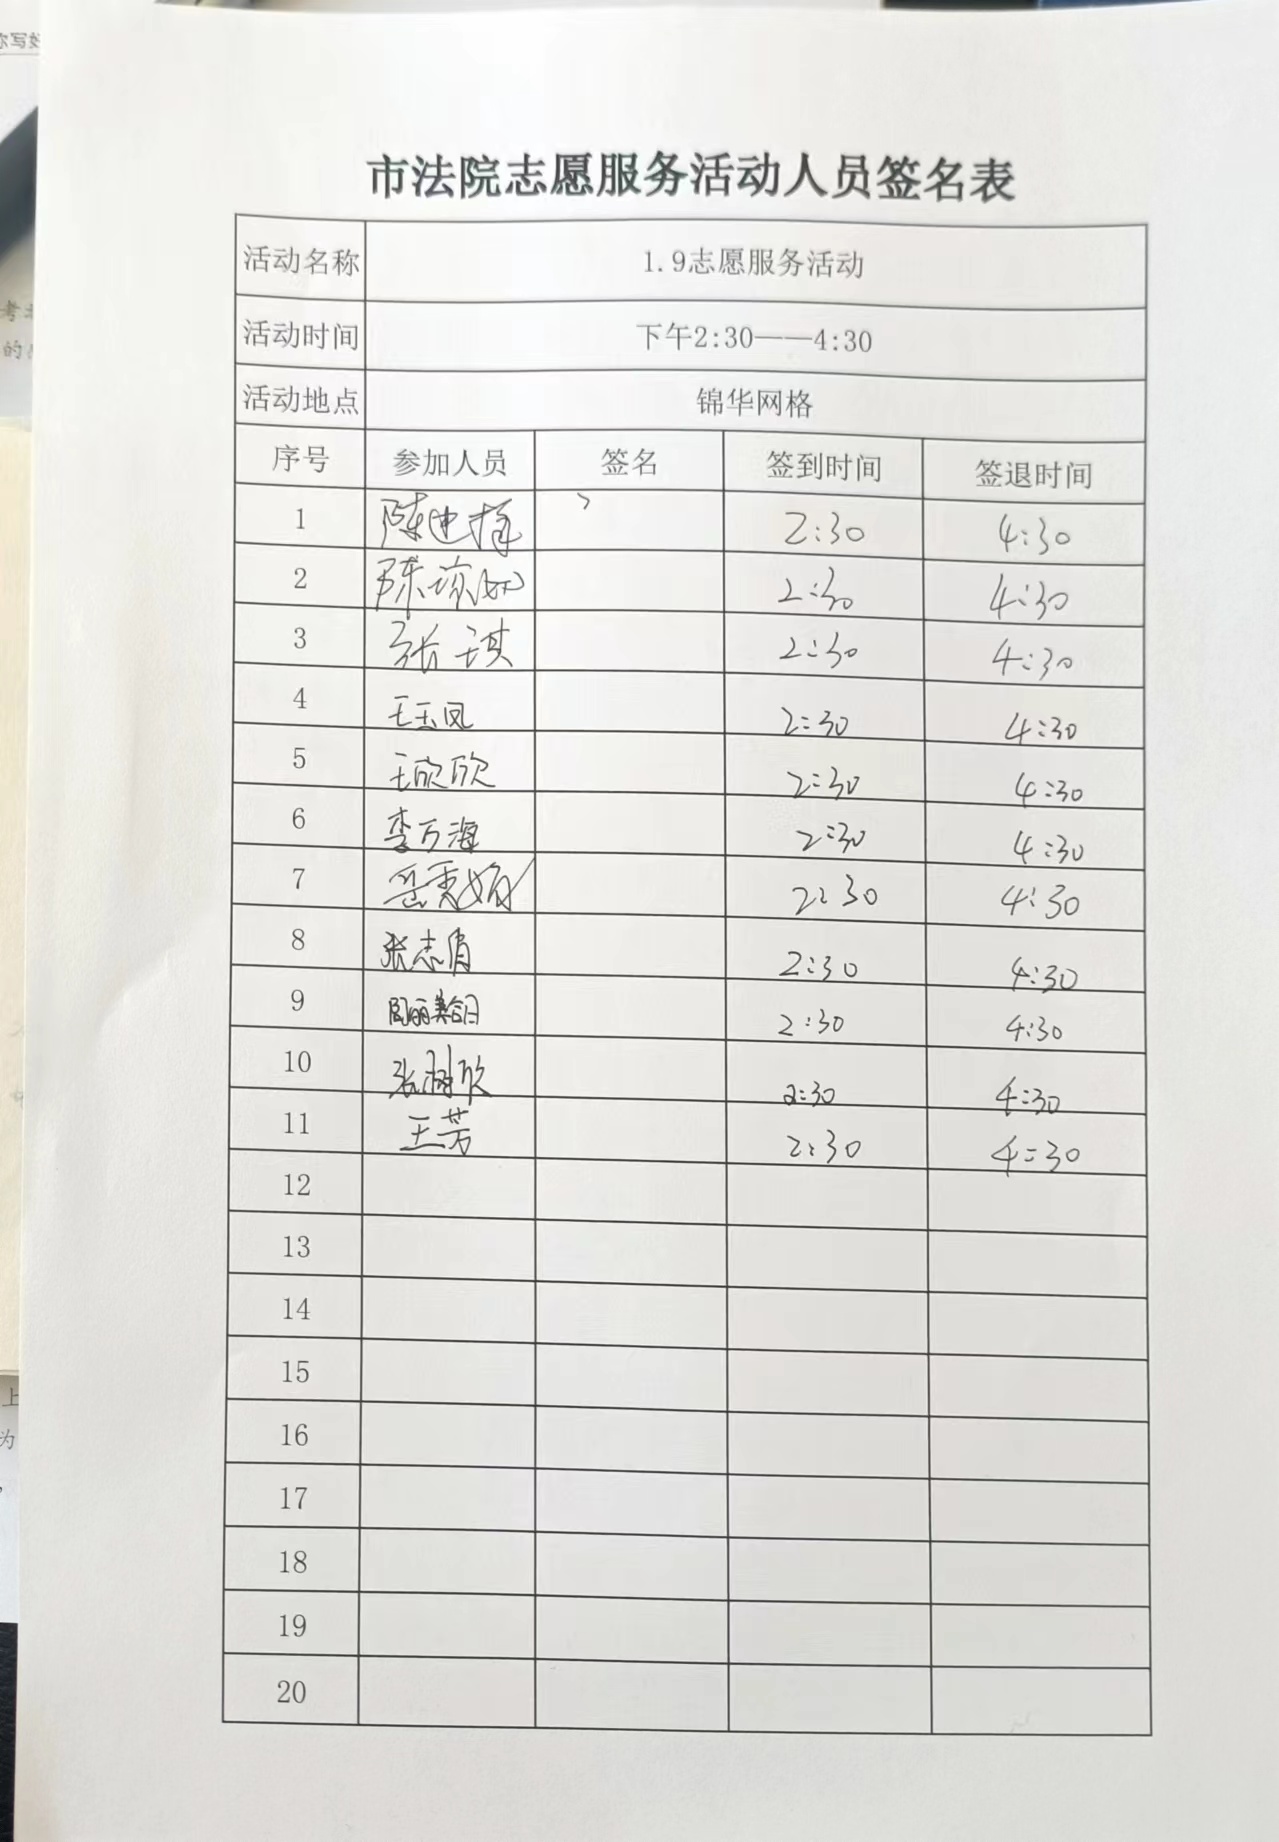 市法院志愿服务活动人员签名表
活动名称 1.9志愿服务活动
活动时间 下午2:30——4:30
活动地点 锦华网格
序号 参加人员 签名 签到时间 签退时间
1 陈 2:30 4:30
2 陈琼如 2:30 4:30
3 张琪 2:30 4:30
4 王玉凤 2:30 4:30
5 王欣欣 2:30 4:30
6 李万海 2:30 4:30
7 岳秀娟 2:30 4:30
8 张志肖 2:30 4:30
9 2:30 4:30
10 张欣 2:30 4:30
11 王芳 2:30 4:30
12
13
14
15
16
17
18
19
20
你写好
的
上
为